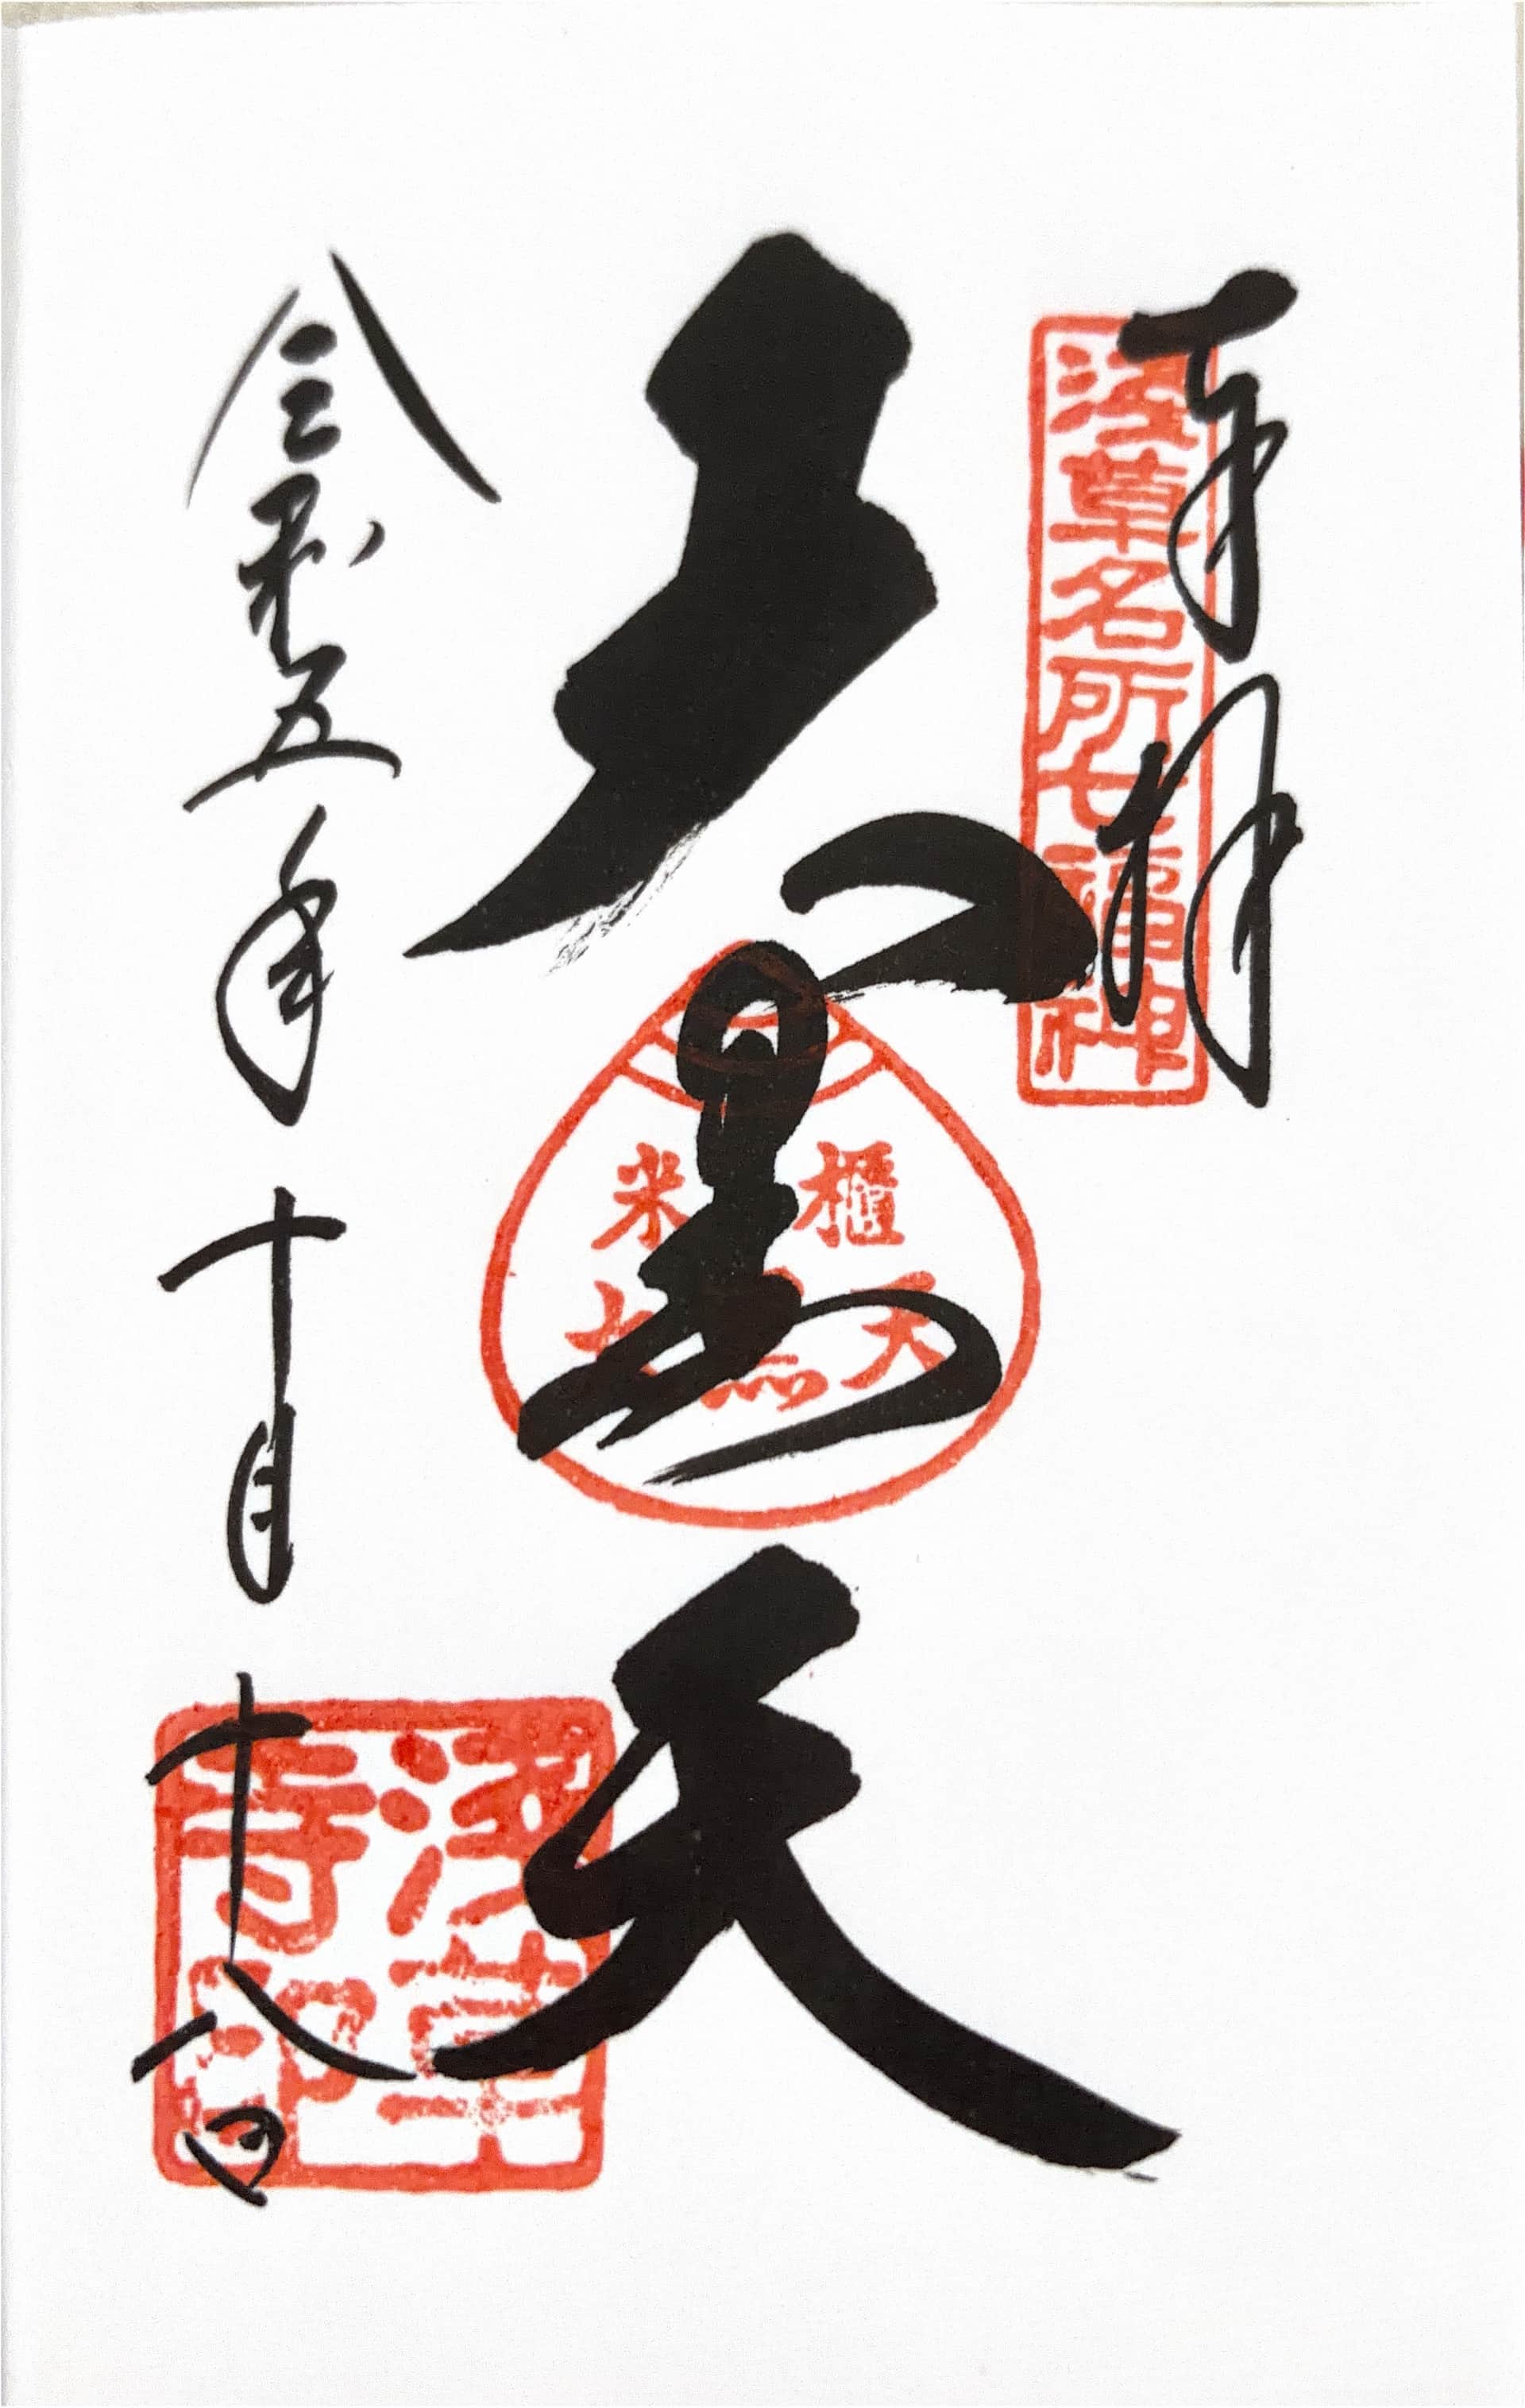 奉拝
浅草名所七福神
大黒天
米櫃
大黒天
令和五年十月十八日
浅草寺印